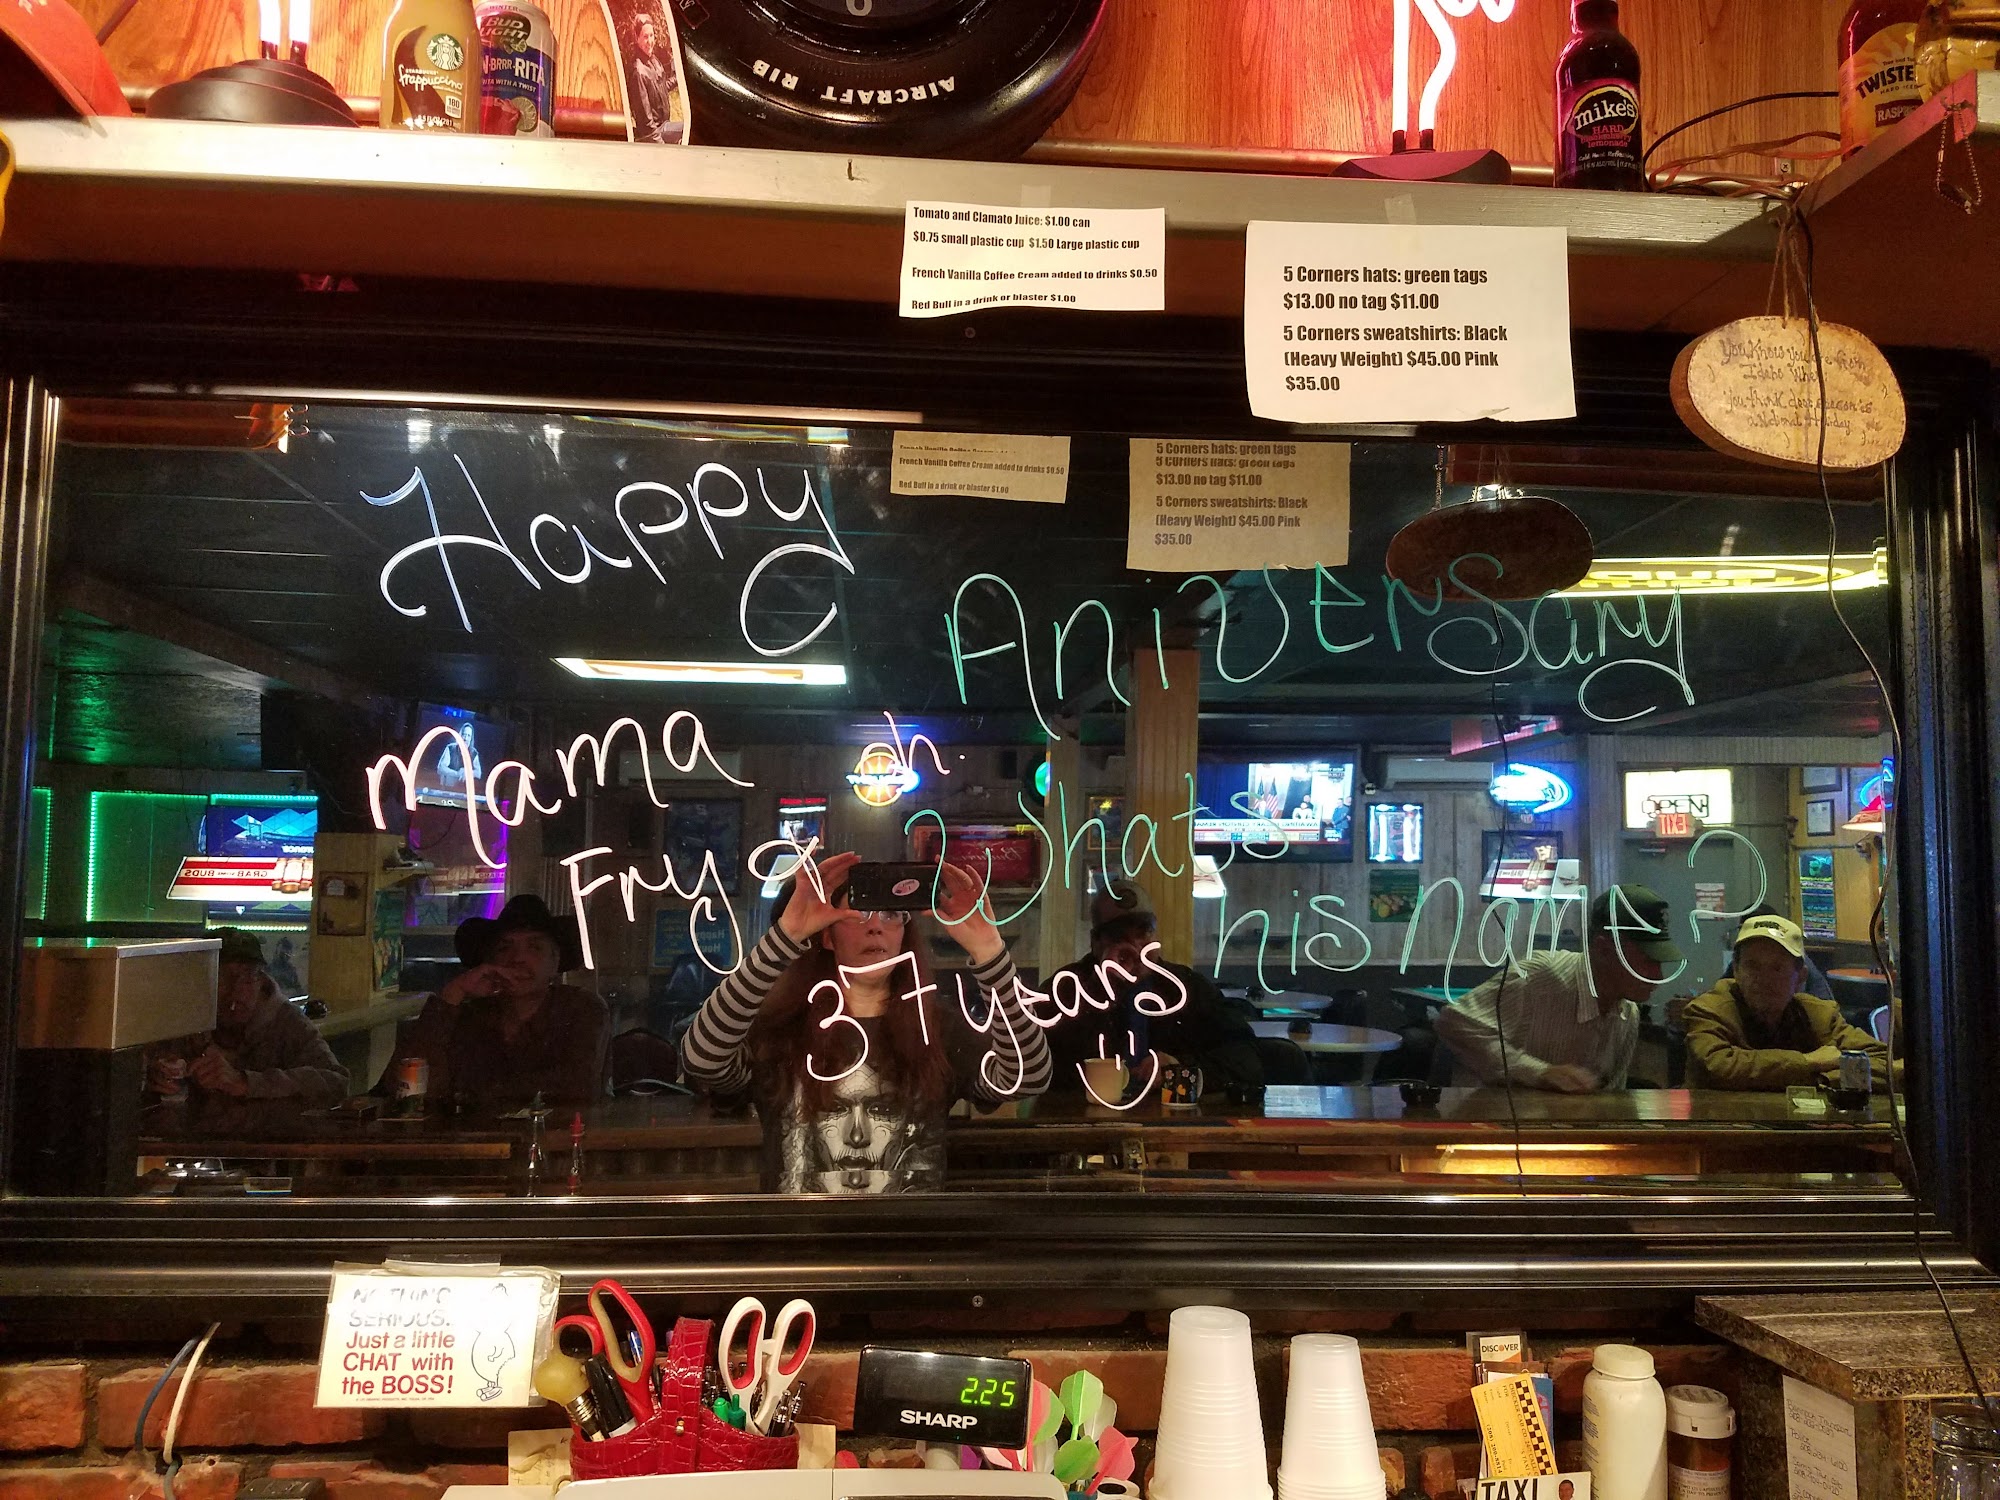 BUD
LIGHT
N-BRRR-RITA
RITA WITH A TWIST
STARBUCKS
frappuccino
180
AIRCRAFT RIB
mike's
HARD
lemonade
TWISTE
RASP
Tomato and Clamato Juice: $1.00 can
$0.75 small plastic cup $1.50 Large plastic cup
French Vanilla Coffee Cream added to drinks $0.50
Red Bull in a drink or blaster $1.00
5 Corners hats: green tags
$13.00 no tag $11.00
5 Corners sweatshirts: Black
(Heavy Weight) $45.00 Pink
$35.00
You Know You are from
Idaho When
You think deer season is
a National Holiday
French Vanilla Coffee Cream added to drinks $0.50
Red Bull in a drink or blaster $1.00
5 Corners hats: green tags
$13.00 no tag $11.00
5 Corners sweatshirts: Black
(Heavy Weight) $45.00 Pink
$35.00
Happy
Aniversary
Mama
oh.
Fry &
Whats
his name?
37 years
OPEN
EXIT
GRAB SOME BUDS
NOTHING
SERIOUS.
Just a little
CHAT with
the BOSS!
2.25
SHARP
DISCOVER
TAXI